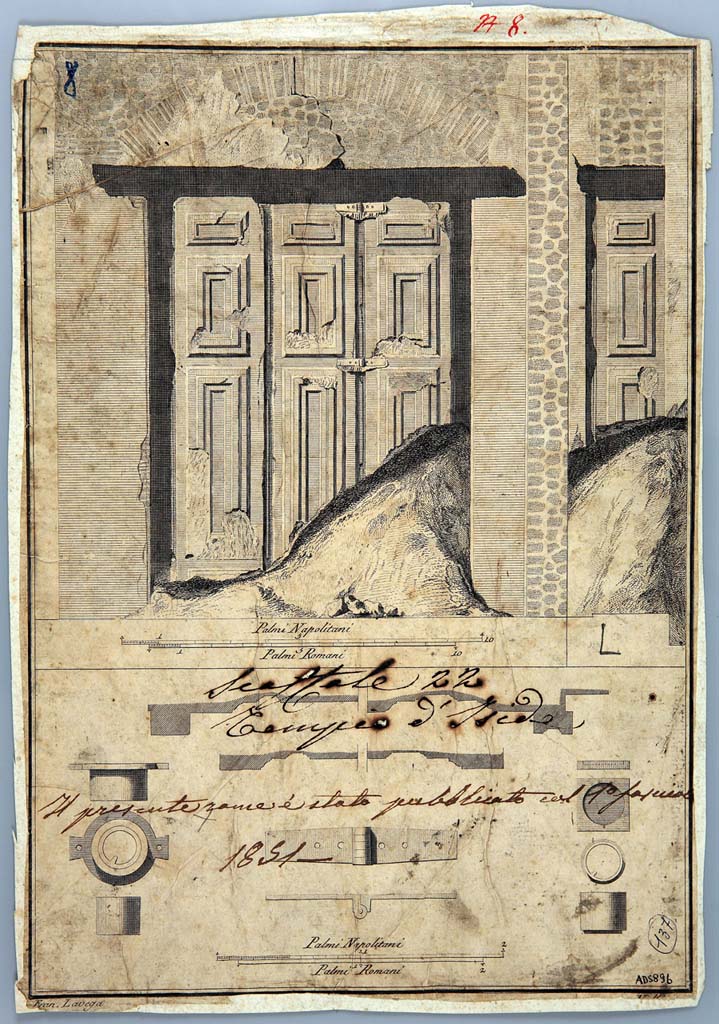 N 8.
8
1
Palmi Napolitani
5
10
1
Palmi Romani
5
10
L
Scaffale 22
Tempio d'Iside
Il presente rame è stato pubblicato col 1° fascicolo
1851
Palmi Napolitani
1
2
Palmi Romani
1
2
437
ADS896
Fran. Lavega